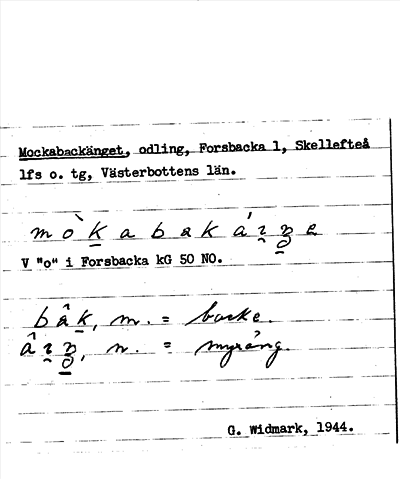 Mockabackänget, odling, Forsbacka 1, Skellefteå
lfs o. tg, Västerbottens län.
V "o" i Forsbacka kG 50 NO.
m. = backe.
n. = myräng.
G. Widmark, 1944.